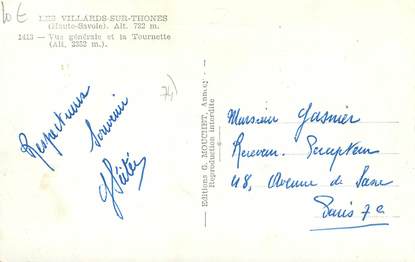 10 €
LES VILLARDS-SUR-THONES
(Haute-Savoie). Alt. 722 m.
1413 — Vue générale et la Tournette
(Alt. 2352 m.).
74)
Respectueux
Souvenir
Editions G. MOUCHET, Annecy
Reproduction interdite
Monsieur Gasnier
48, Avenue de Saxe
Paris 7e